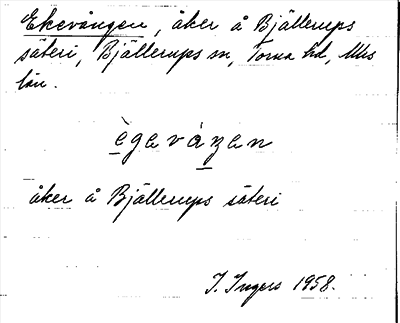 Ekevången, åker å Bjällerups
säteri, Bjällerups sn, Torna hd, Mlhs
län.
ègavàŋan
åker å Bjällerups säteri
I. Ingers 1958.